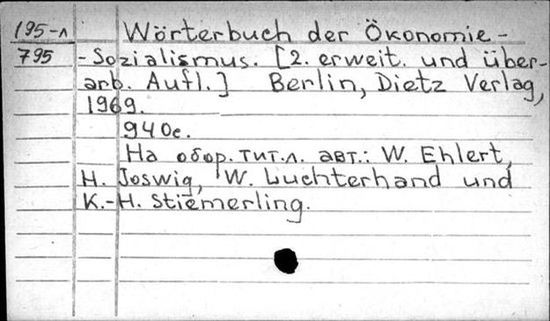 195-л Wörterbuch der Ökonomie -
795 - Sozialismus. [2. erweit. und über-
arb. Aufl.] Berlin, Dietz Verlag,
1969.
940с.
На обор. тит.л. авт.: W. Ehlert,
H. Joswig, W. Luchterhand und
K.-H. Stiemerling.